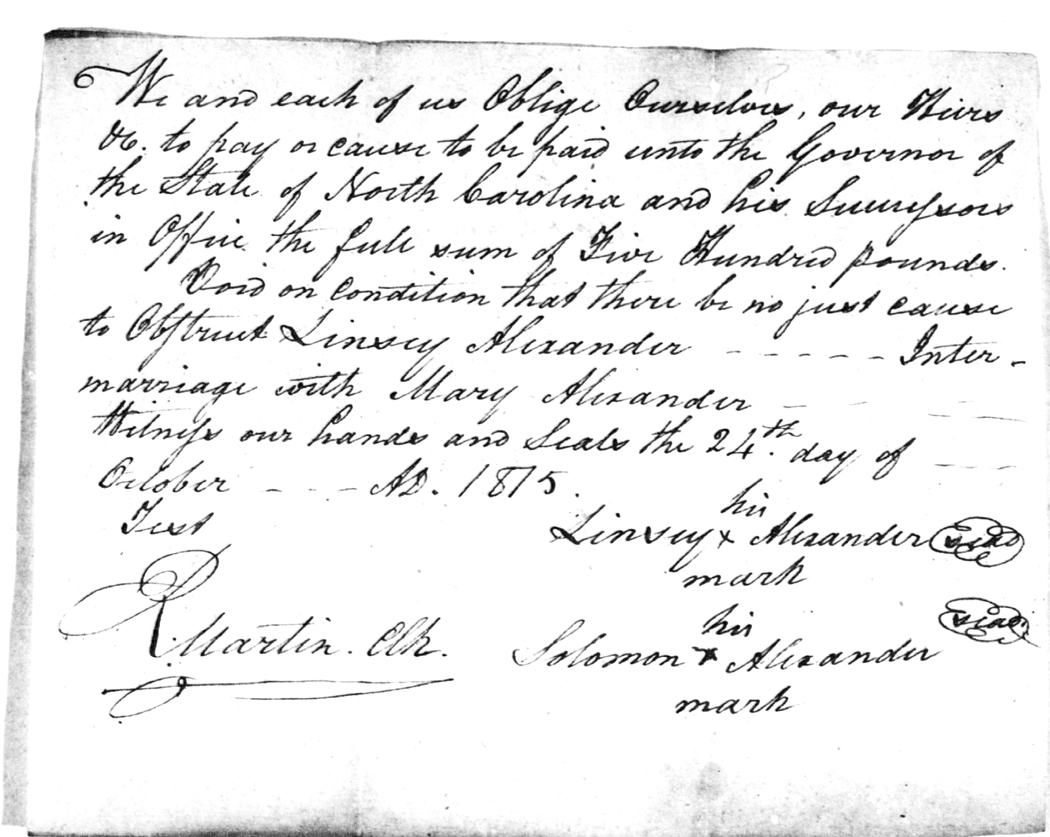 We and each of us Oblige Ourselves, our Heirs
&c. to pay or cause to be paid unto the Governor of
the State of North Carolina and his Successors
in Office the full sum of Five Hundred pounds.
Void on condition that there be no just cause
to Obstruct Linsey Alexander - - - - - Inter-
marriage with Mary Alexander - - -
Witness our hands and Seals the 24th. day of - - -
October - - - AD. 1815.
Test
his
Linsey x Alexander seal
mark
R Martin. Clk.
his
Solomon x Alexander seal
mark